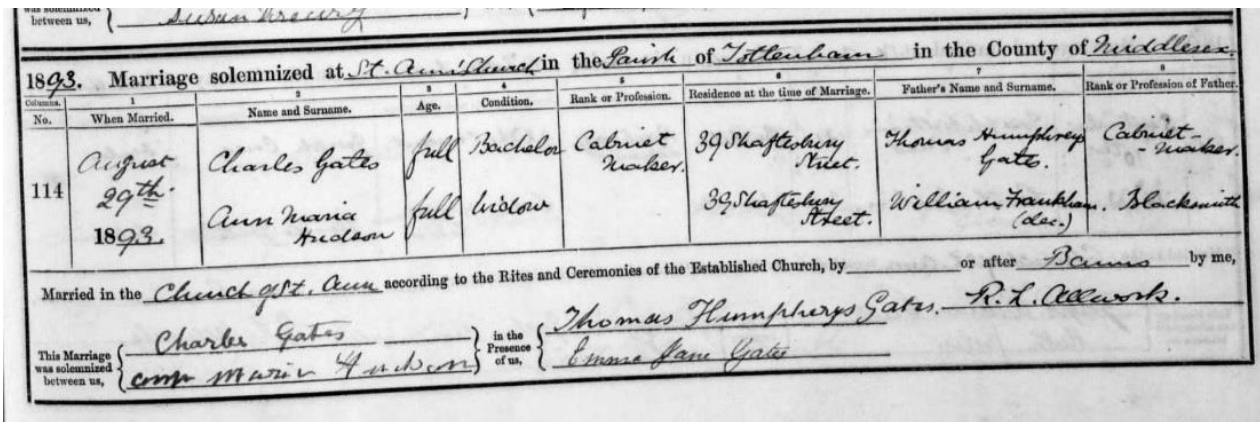 was solemnized between us, Susan Drewry
1893. Marriage solemnized at St. Ann's Church in the Parish of Tottenham in the County of Middlesex.
Columns. 1 2 3 4 5 6 7 8
No. When Married. Name and Surname. Age. Condition. Rank or Profession. Residence at the time of Marriage. Father's Name and Surname. Rank or Profession of Father.
114 August 29th. 1893. Charles Gates full Bachelor Cabinet Maker. 39 Shaftesbury Street. Thomas Humphreys Gates. Cabinet-maker.
Ann Maria Hudson full Widow 39 Shaftesbury Street. William Frankham. (dec.) Blacksmith
Married in the Church of St. Ann according to the Rites and Ceremonies of the Established Church, by or after Banns by me,
R. L. Allwork.
This Marriage was solemnized between us, Charles Gates in the Presence of us, Thomas Humpherys Gates.
Ann Maria Hudson Emma Jane Gates